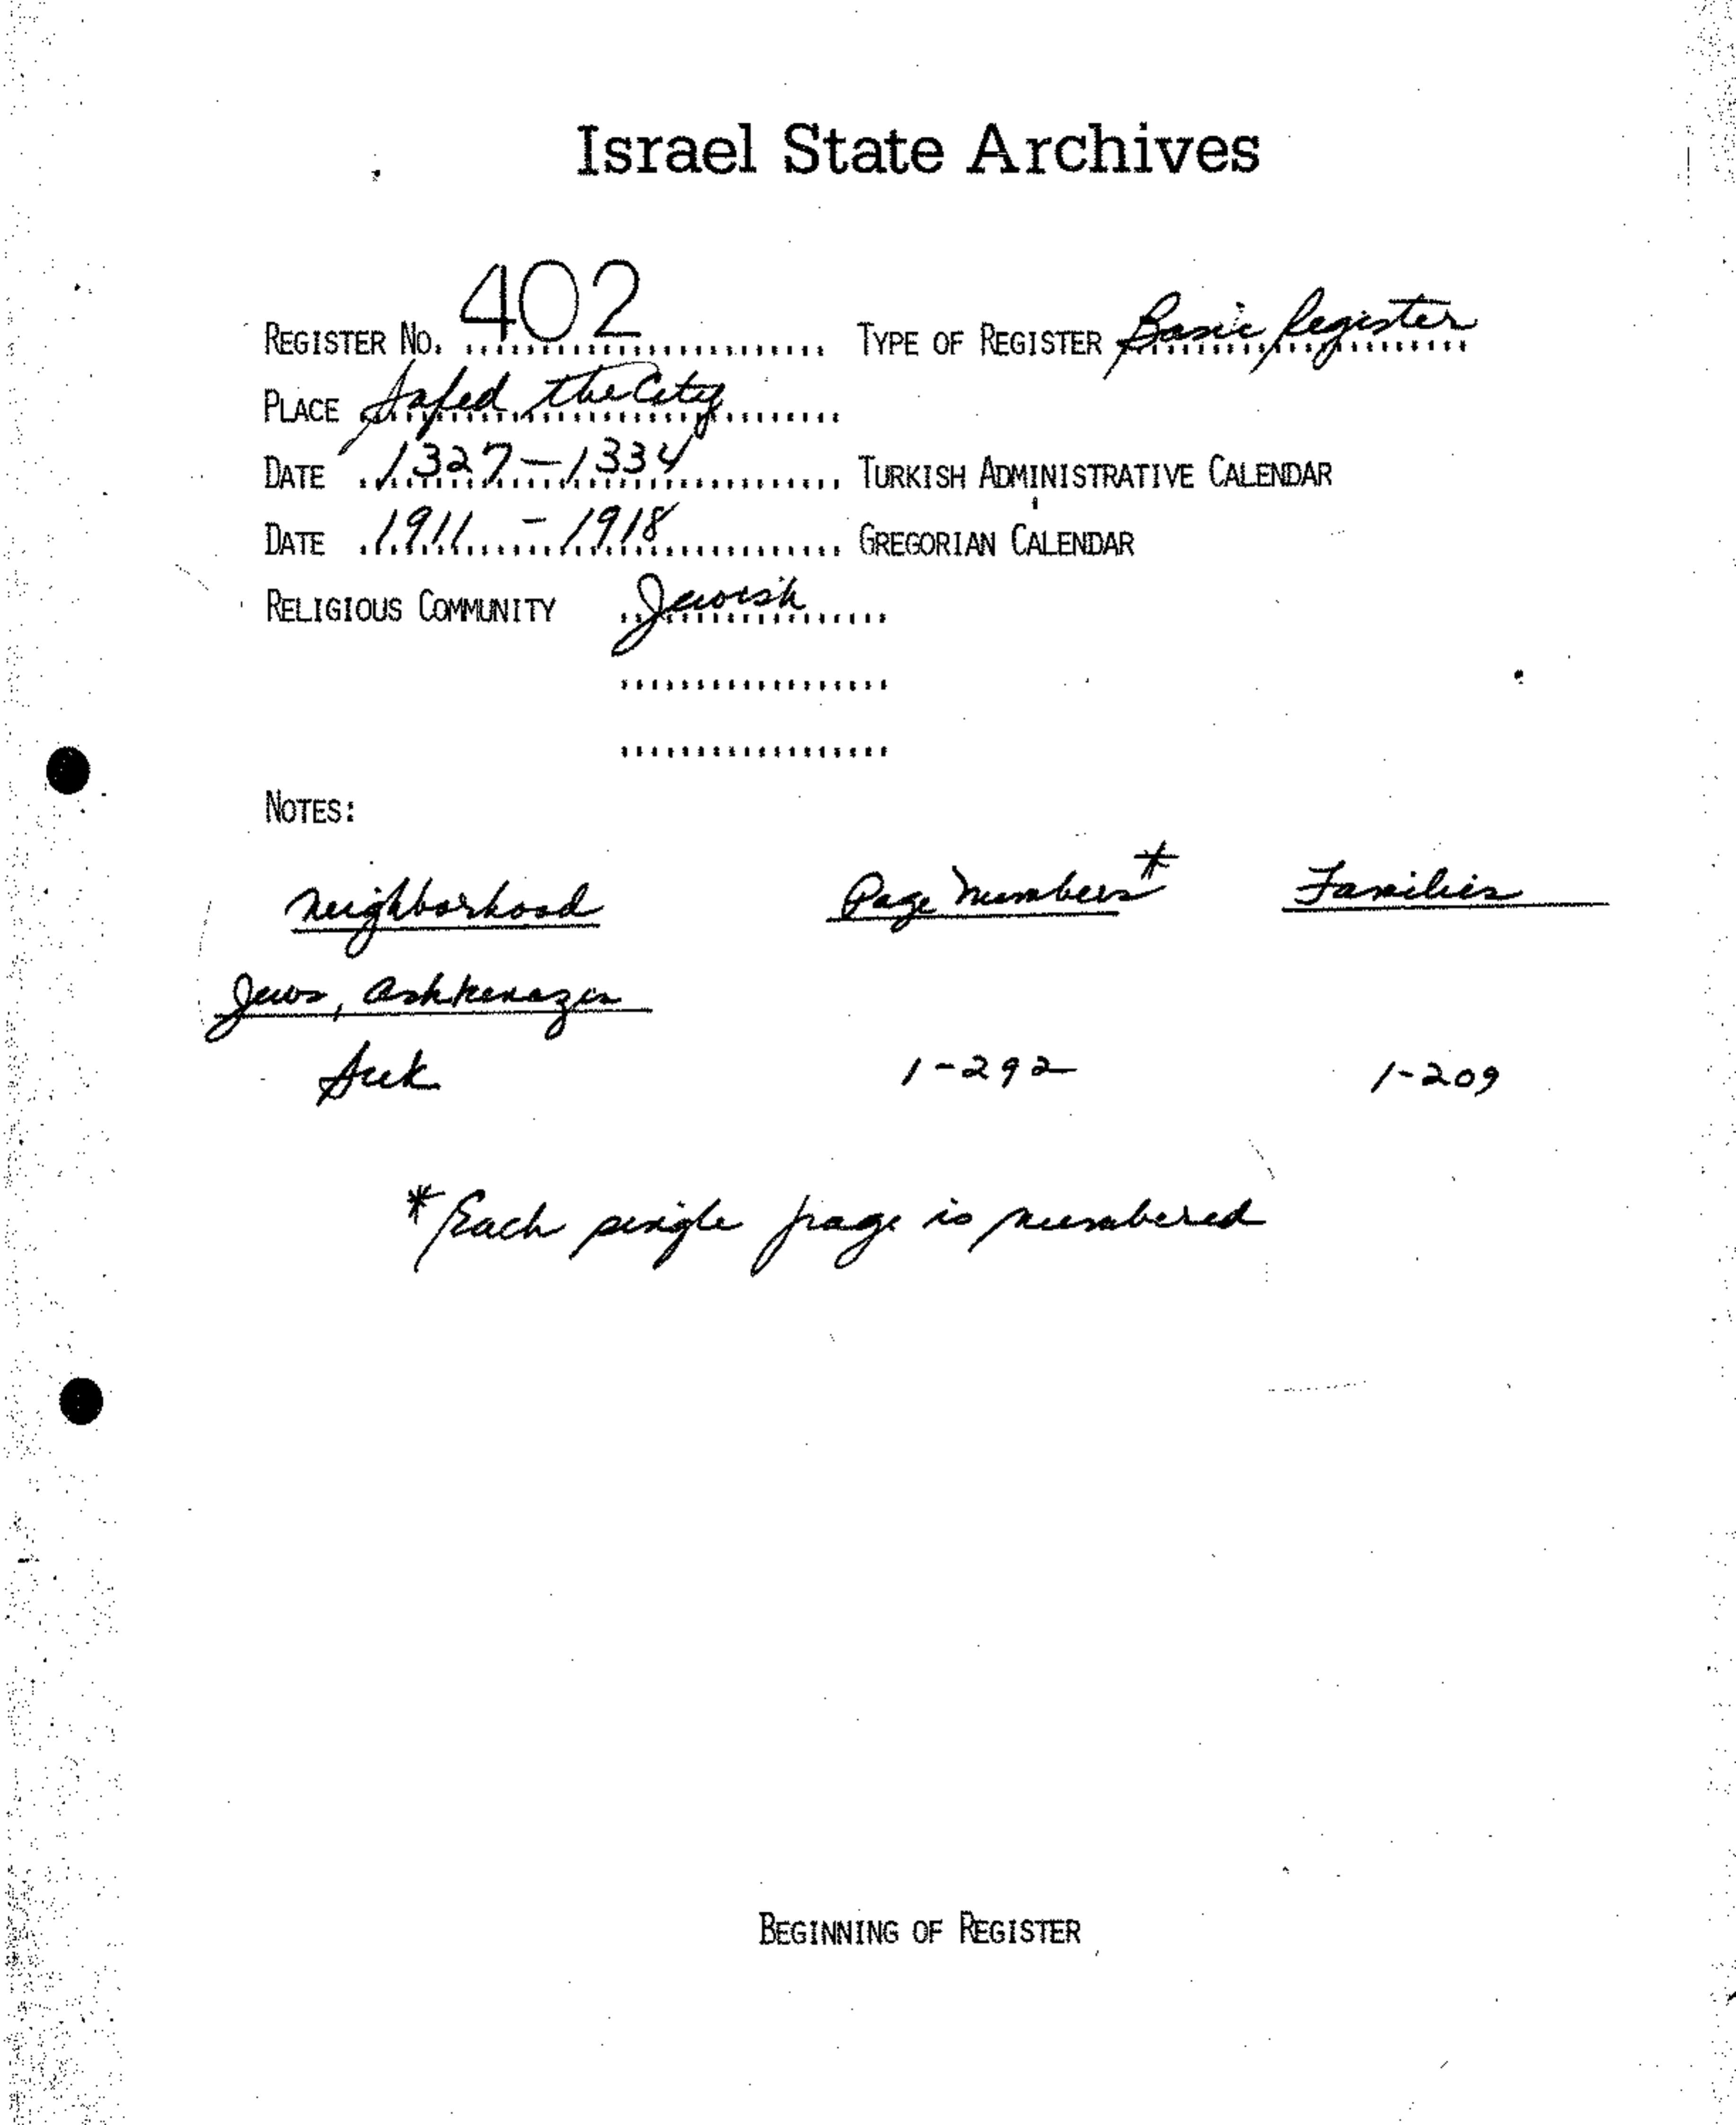 Israel State Archives
REGISTER NO. 402 TYPE OF REGISTER Basic Register
PLACE Safed, the City
DATE 1327-1334 TURKISH ADMINISTRATIVE CALENDAR
DATE 1911 - 1918 GREGORIAN CALENDAR
RELIGIOUS COMMUNITY Jewish
NOTES:
Neighborhood Page Numbers* Families
Jews, Ashkenazim
Suk 1-292 1-209
* Each single page is numbered
BEGINNING OF REGISTER